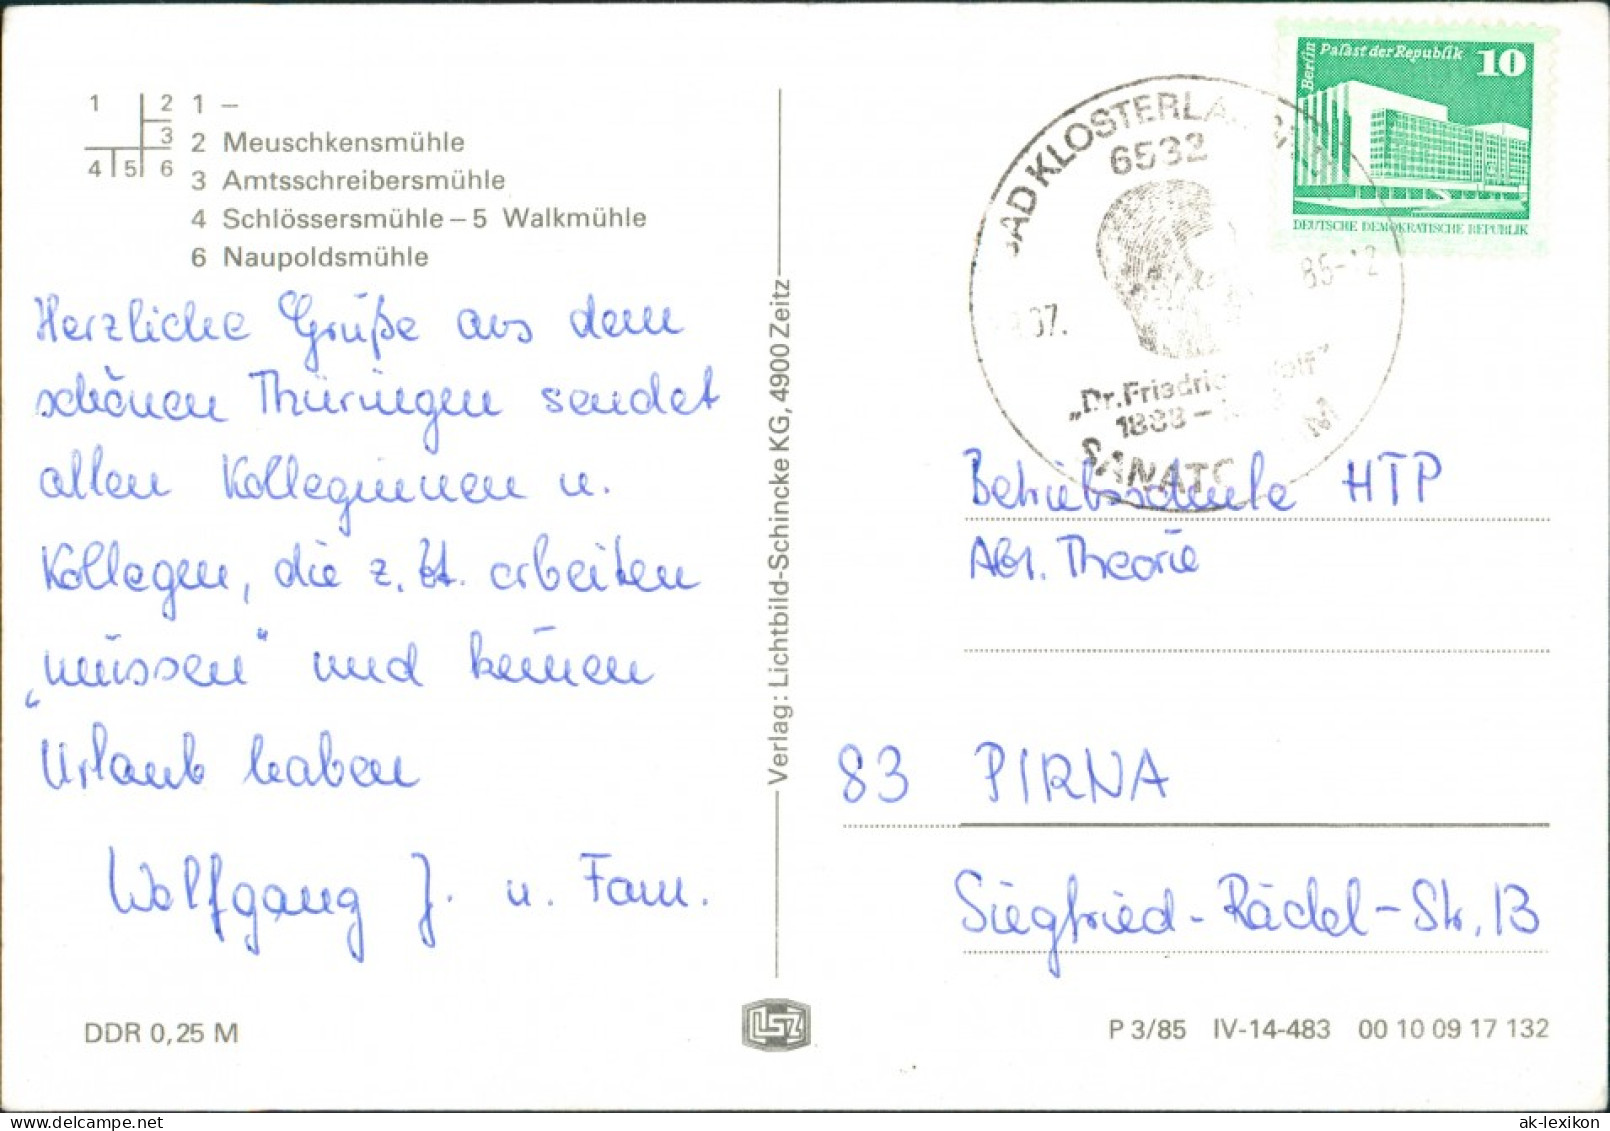 1 2 1 –
3 2 Meuschkensmühle
4 5 6 3 Amtsschreibersmühle
4 Schlössersmühle – 5 Walkmühle
6 Naupoldsmühle
Herzliche Grüße aus dem
schönen Thüringen sendet
allen Kolleginnen u.
Kollegen, die z. Zt. arbeiten
„müssen“ und keinen
Urlaub haben
Wolfgang J. u. Fam.
DDR 0,25 M
Verlag: Lichtbild-Schincke KG, 4900 Zeitz
LSZ
Berlin
Palast der Republik 10
DEUTSCHE DEMOKRATISCHE REPUBLIK
BAD KLOSTERLA
6532
.07. 85-12
„Dr. Friedri
1888 –
SANATO
Betriebsschule HTP
Abt. Theorie
83 PIRNA
Siegfried-Rädel-Str. 13
P 3/85 IV-14-483 00 10 09 17 132
ak-lexikon